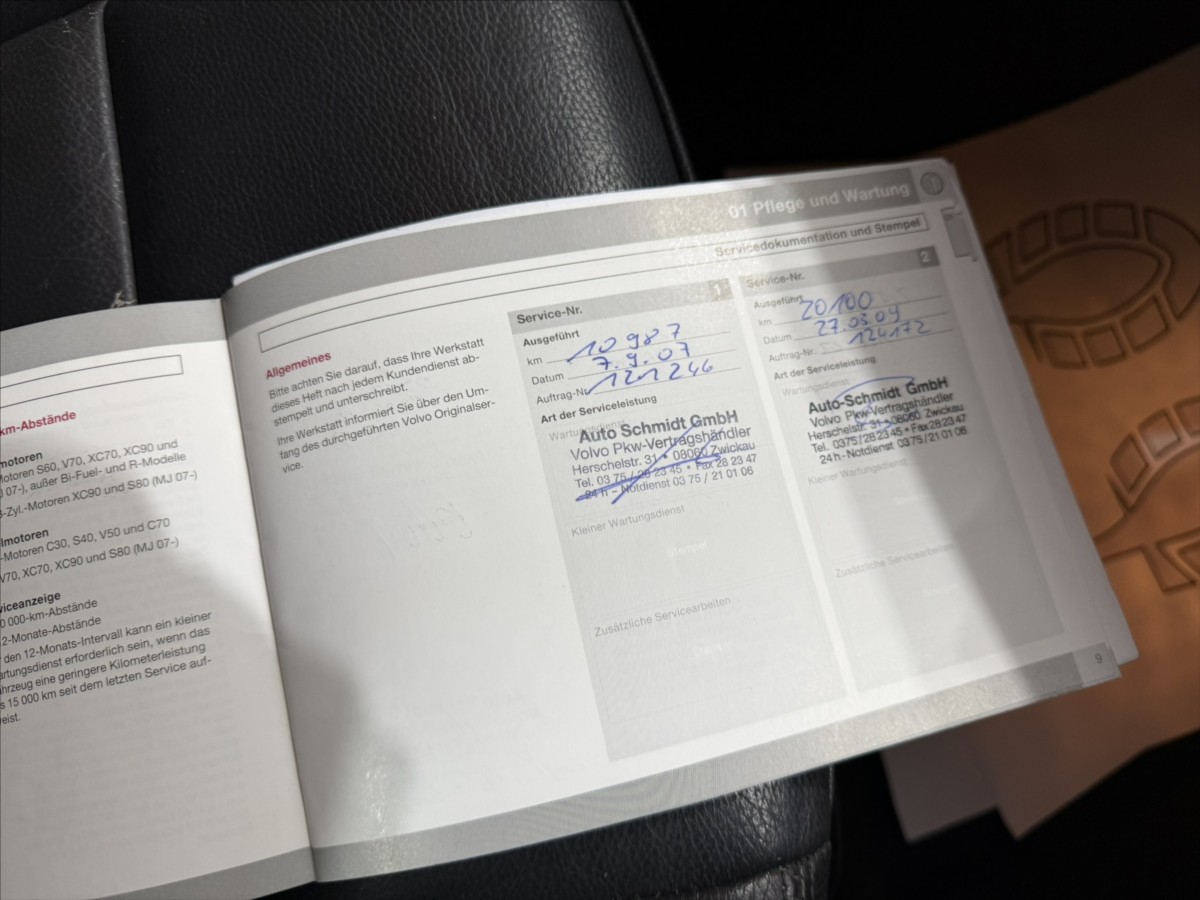 km-Abstände
motoren
Motoren S60, V70, XC70, XC90 und
07-), außer Bi-Fuel- und R-Modelle
-Zyl.-Motoren XC90 und S80 (MJ 07-)
lmotoren
-Motoren C30, S40, V50 und C70
V70, XC70, XC90 und S80 (MJ 07-)
viceanzeige
0 000-km-Abstände
2-Monate-Abstände
den 12-Monats-Intervall kann ein kleiner
artungsdienst erforderlich sein, wenn das
hrzeug eine geringere Kilometerleistung
s 15 000 km seit dem letzten Service auf-
eist.
01 Pflege und Wartung
Servicedokumentation und Stempel
Allgemeines
Bitte achten Sie darauf, dass Ihre Werkstatt
dieses Heft nach jedem Kundendienst ab-
stempelt und unterschreibt.
Ihre Werkstatt informiert Sie über den Um-
fang des durchgeführten Volvo Originalser-
vice.
Service-Nr. 1
Ausgeführt
km 10987
Datum 7.9.07
Auftrag-Nr. 121246
Art der Serviceleistung
Wartungsdienst
Auto Schmidt GmbH
Volvo Pkw-Vertragshändler
Herschelstr. 31 • 08060 Zwickau
Tel. 03 75 / 28 23 45 • Fax 28 23 47
24 h – Notdienst 03 75 / 21 01 06
Kleiner Wartungsdienst
Stempel
Zusätzliche Servicearbeiten
Stempel
Service-Nr. 2
Ausgeführt
km 20100
Datum 27.03.09
Auftrag-Nr. 124172
Art der Serviceleistung
Wartungsdienst
Auto-Schmidt GmbH
Volvo Pkw-Vertragshändler
Herschelstr. 31 • 08060 Zwickau
Tel. 0375/28 23 45 • Fax 28 23 47
24h-Notdienst 0375/21 01 06
Kleiner Wartungsdienst
Zusätzliche Servicearbeiten
9